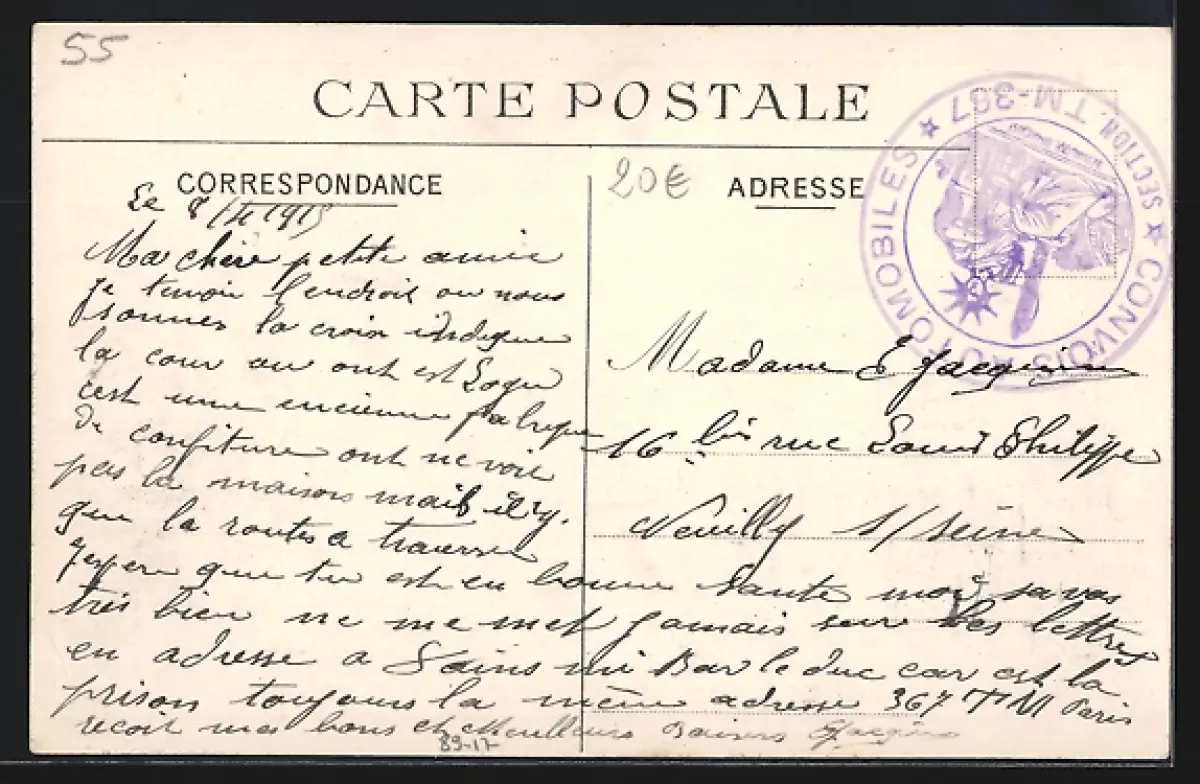 55
CARTE POSTALE
SECTION T.M-367 ★ CONVOIS AUTOMOBILES ★
CORRESPONDANCE
20€
ADRESSE
Le 8/4 1915
Ma chère petite amie
je tenvoie lendroit ou nous
sommes la croix indique
la cour ou ont est Loger
cest une encienne fabrique
de confiture ont ne voie
pas la maison mais il y.
que la route a traverser
Jespere que tu est en bonne sante moi sa vas
très bien ne me met jamais sur les lettres
en adresse a Bar le duc car est la
prison toujours la même adresse 367 TM Paris
recoit mes bons et meilleurs Baisers
Madame E Jacquin
16 bis rue Louis Philippe
Neuilly s/seine
89-17